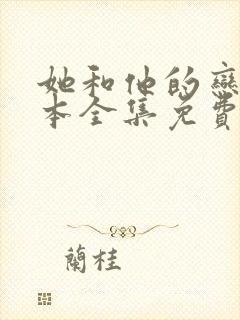 她和他的戀
本全集免費
蘭桂